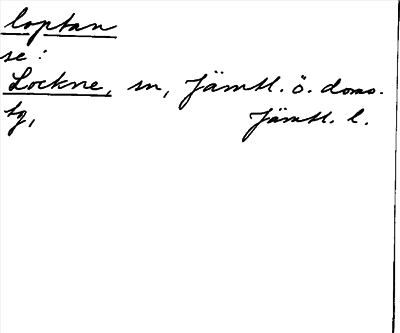 loptan
se:
Lockne, sn, Jämtl. ö. doms.
tg, Jämtl. l.